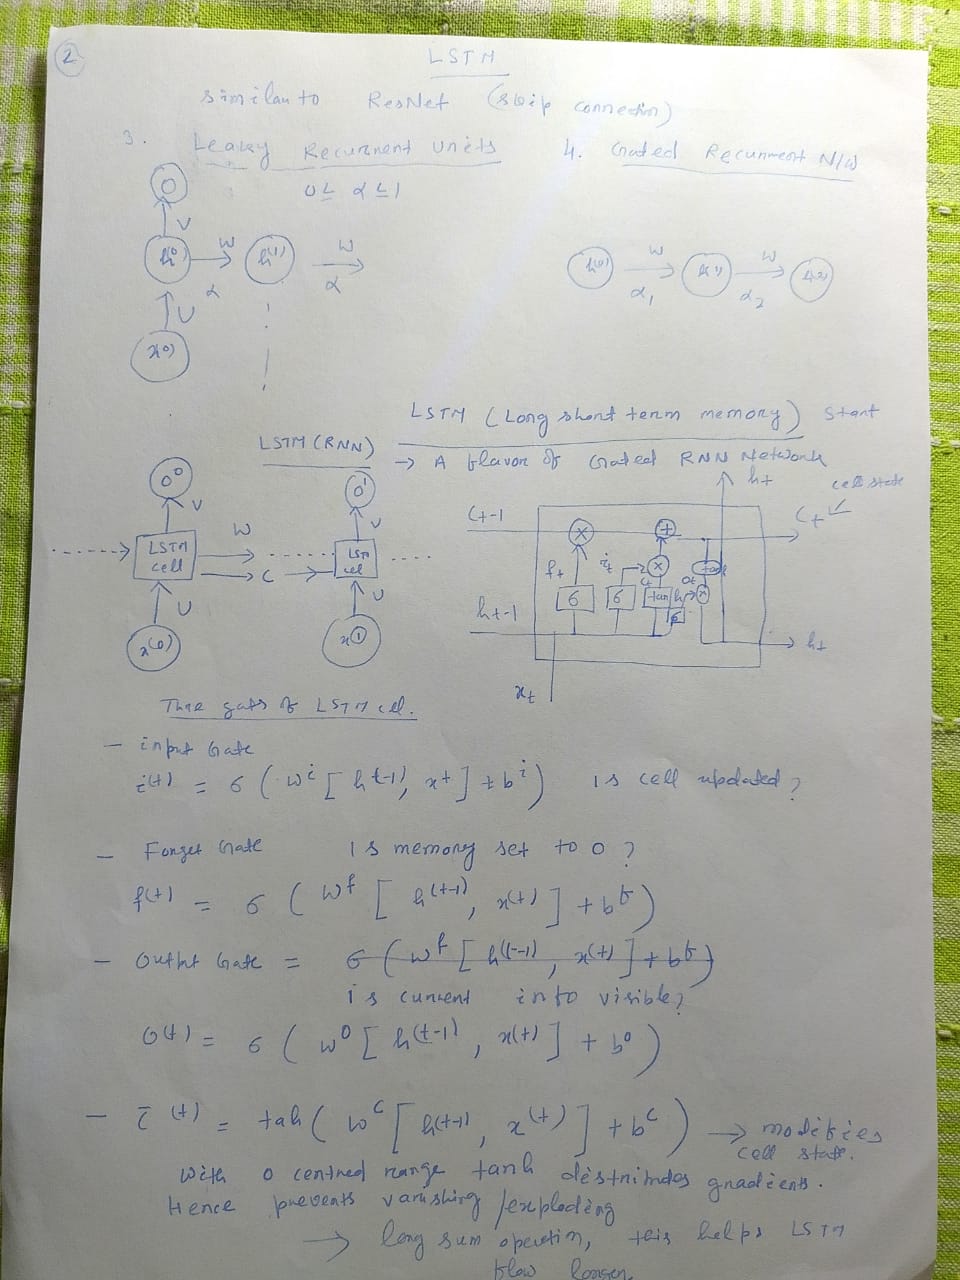 2
LSTM
similar to ResNet (skip connection)
3. Leaky Recurrent Units
0 ≤ α ≤ 1
4. Gated Recurrent N/W
O
V
h⁰ W h⁽¹⁾ W
α α
U
x⁽⁰⁾
h⁽⁰⁾ W h⁽¹⁾ W h⁽²⁾
α₁ α₂
LSTM (Long short term memory) start
→ A flavor of Gated RNN Network
LSTM (RNN)
O⁰ O¹
V V
LSTM cell W LSTM cel
C
U U
x⁽⁰⁾ x⁽¹⁾
hₜ
cell state
Cₜ₋₁ × + Cₜ
fₜ iₜ × tanh
σ σ tanh σ Oₜ ×
hₜ₋₁ hₜ
xₜ
Three gates of LSTM cell.
- input Gate
i⁽ᵗ⁾ = σ ( wⁱ [ h⁽ᵗ⁻¹⁾, xᵗ ] + bⁱ ) Is cell updated?
- Forget Gate Is memory set to 0?
f⁽ᵗ⁾ = σ ( Wᶠ [ h⁽ᵗ⁻¹⁾, x⁽ᵗ⁾ ] + bᶠ )
- Output Gate = σ ( wᶠ [ h⁽ᵗ⁻¹⁾, x⁽ᵗ⁾ ] + bᶠ )
is current info visible?
O⁽ᵗ⁾ = σ ( w⁰ [ h⁽ᵗ⁻¹⁾, x⁽ᵗ⁾ ] + b⁰ )
- c̄ ⁽ᵗ⁾ = tah ( wᶜ [ h⁽ᵗ⁻¹⁾, x⁽ᵗ⁾ ] + bᶜ ) → modifies
cell state.
with 0 centred range tanh distributes gradients.
Hence prevents vanishing / exploding
→ long sum operation, this helps LSTM
flow longer.